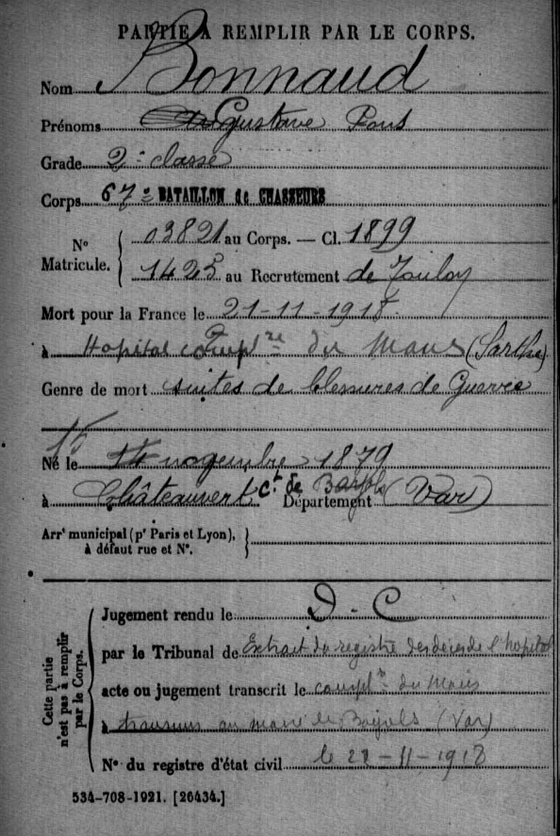 PARTIE À REMPLIR PAR LE CORPS.
Nom Bonnaud
Prénoms Gustave Pons
Grade 2e classe
Corps 67e BATAILLON de CHASSEURS
N° Matricule. 03821 au Corps. — Cl. 1899
1425 au Recrutement de Toulon
Mort pour la France le 21-11-1918
à Hopital complre du Mans (Sarthe)
Genre de mort suites de blessures de Guerre
Né le novembre 1879
à Châteauvert ct de Barjols Département (Var)
Arrt municipal (pr Paris et Lyon), à défaut rue et N°.
Cette partie n'est pas à remplir par le Corps.
Jugement rendu le D. C
par le Tribunal de Extrait du registre des décès de l'hopital
acte ou jugement transcrit le complre du Mans
à au maire de (Var)
N° du registre d'état civil le 22-11-1918
534-708-1921. [26434.]